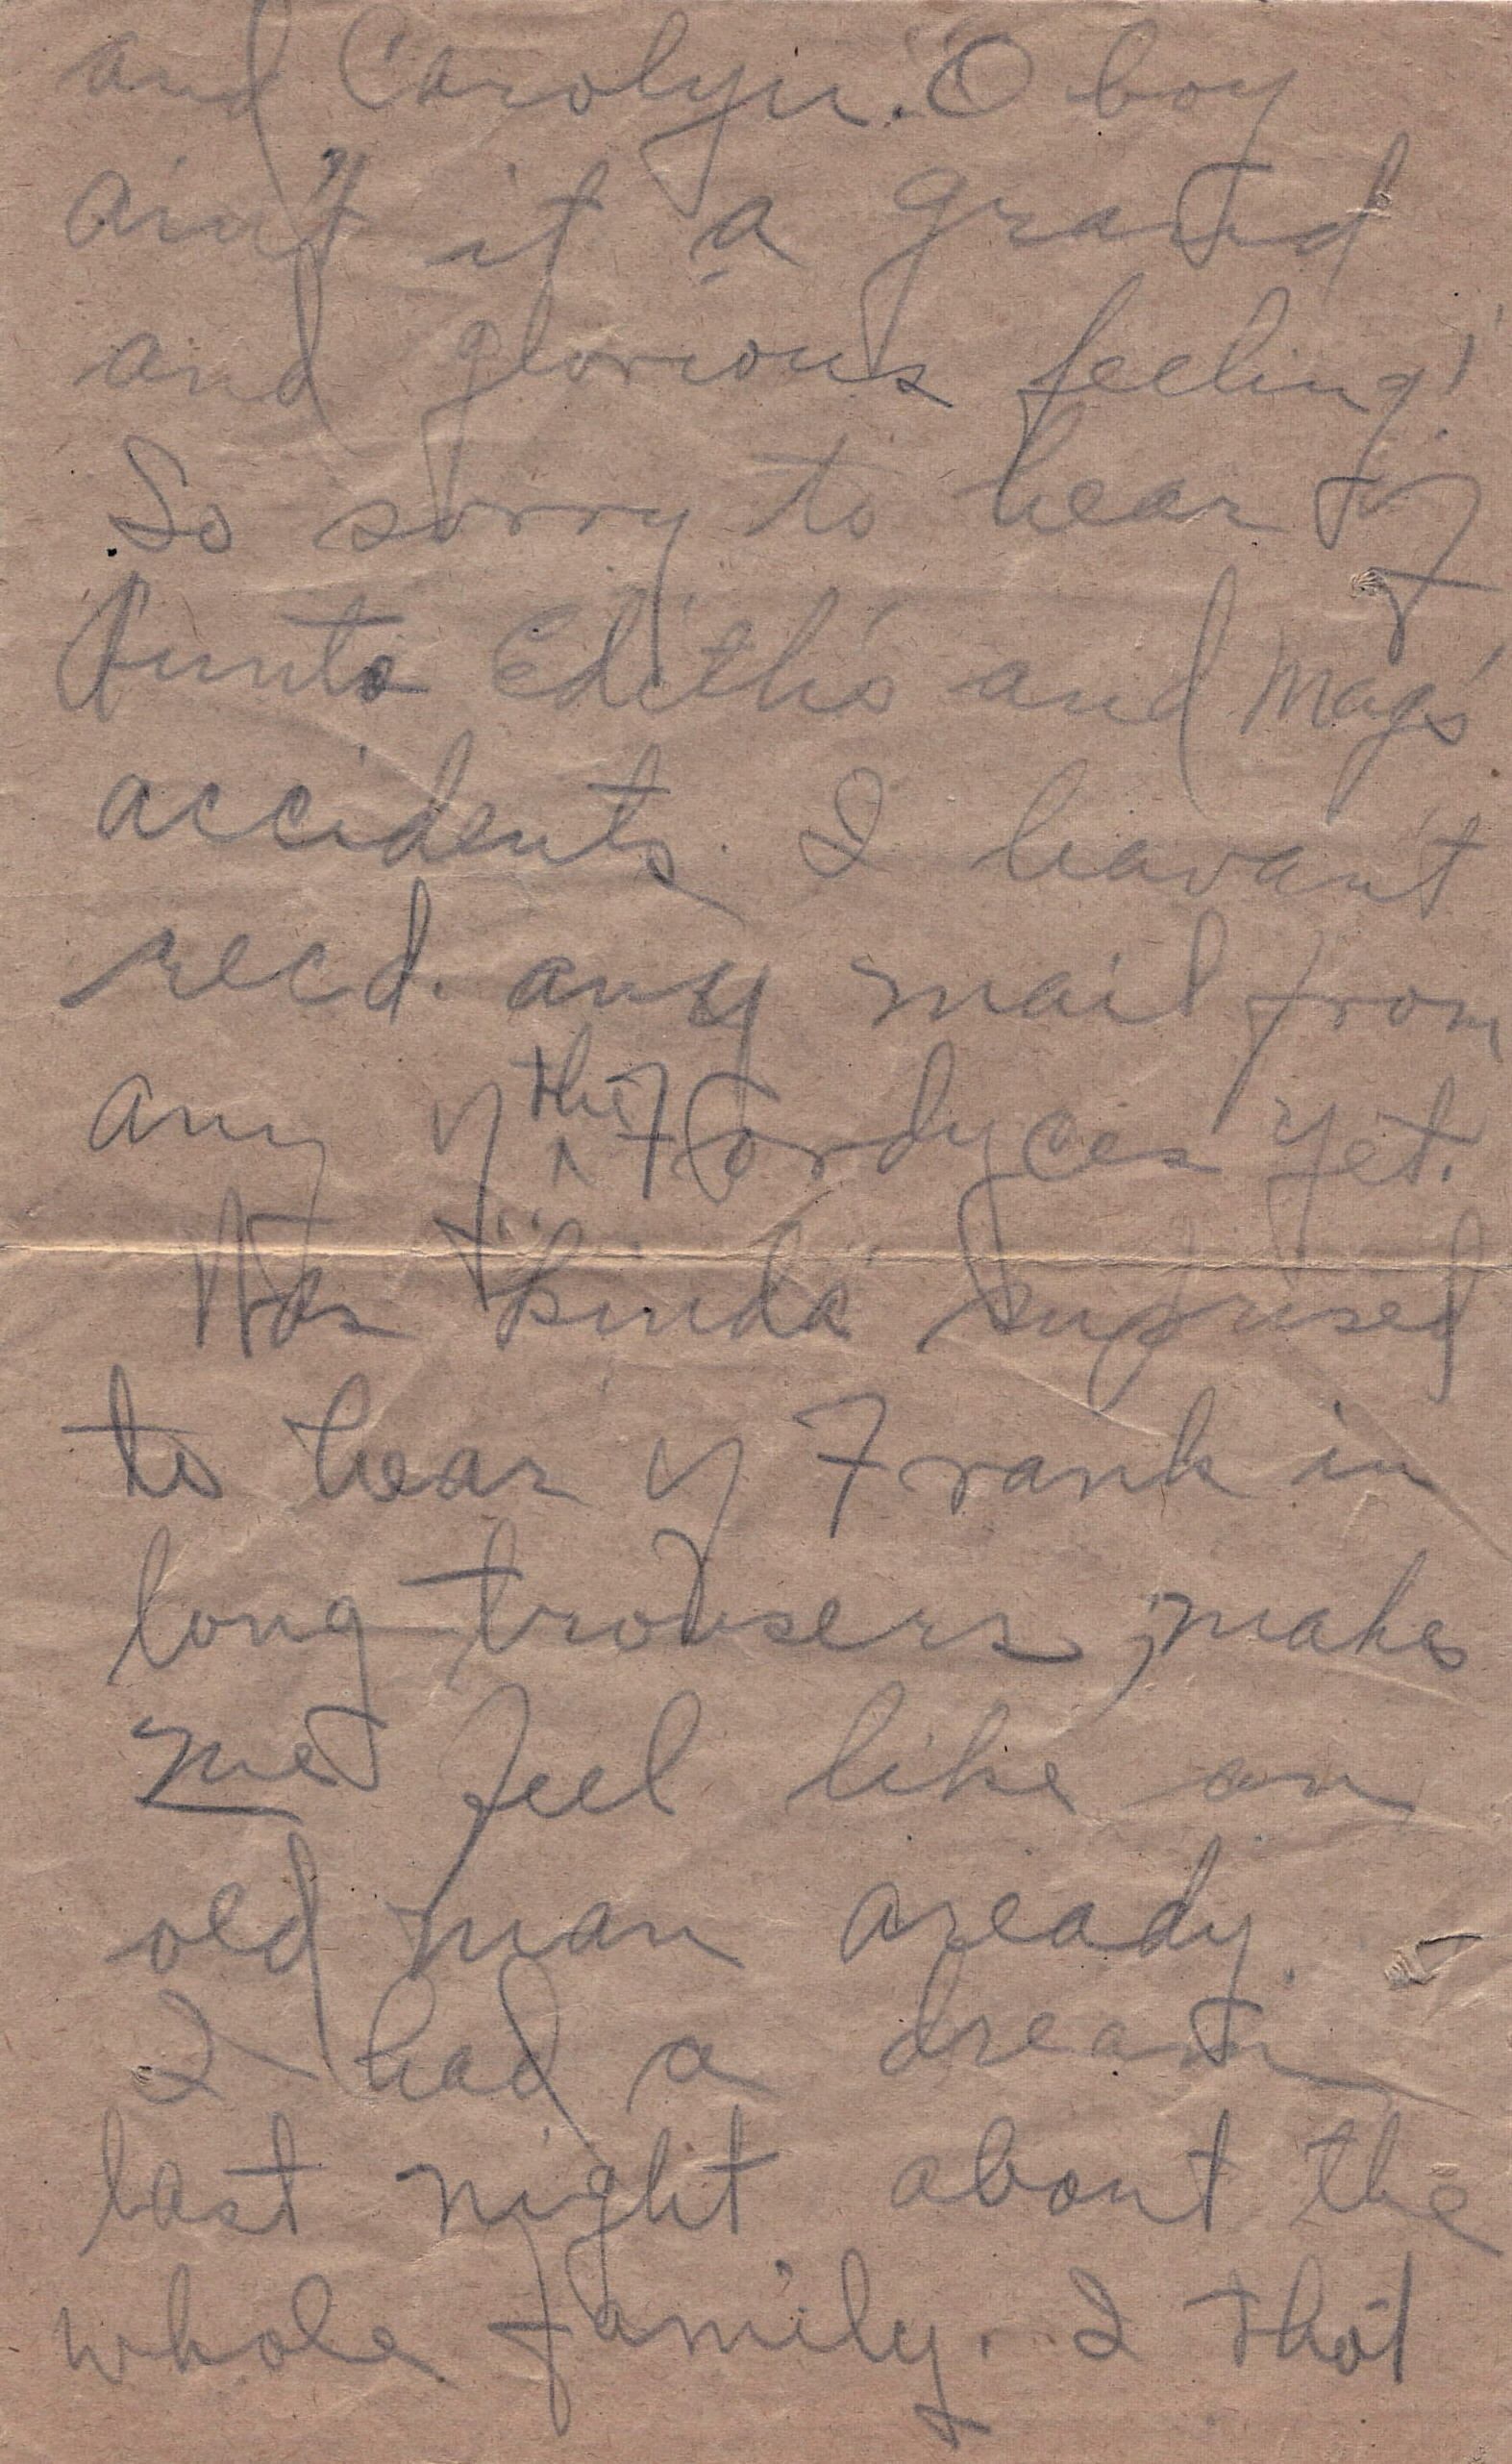 and Carolyn. "O boy
ain't it a grand
and glorious feeling!
So sorry to hear of
Aunts Edith's and Mag's
accidents. I havan't
recd. any mail from
any of the Fordyces yet.
Was "kinda" suprised
to hear of Frank in
long trousers; makes
me feel like an
old man aready.
I had a dream
last night about the
whole family. I thot